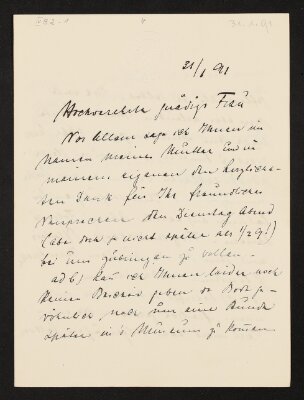 21/1 91
Hochverehrte gnädige Frau
Vor Allem sage ich Ihnen im
Namen meiner Mutter und in
meinem eigenen den herzlich-
sten Dank für Ihr freundliches
Versprechen den Dienstag Abend
(aber doch ja nicht später als 1/2 9!)
bei uns zubringen zu wollen.
ad b) kann ich Ihnen leider noch
keinen Bescheid geben
noch um eine Stunde
später in's Museum zu kommen